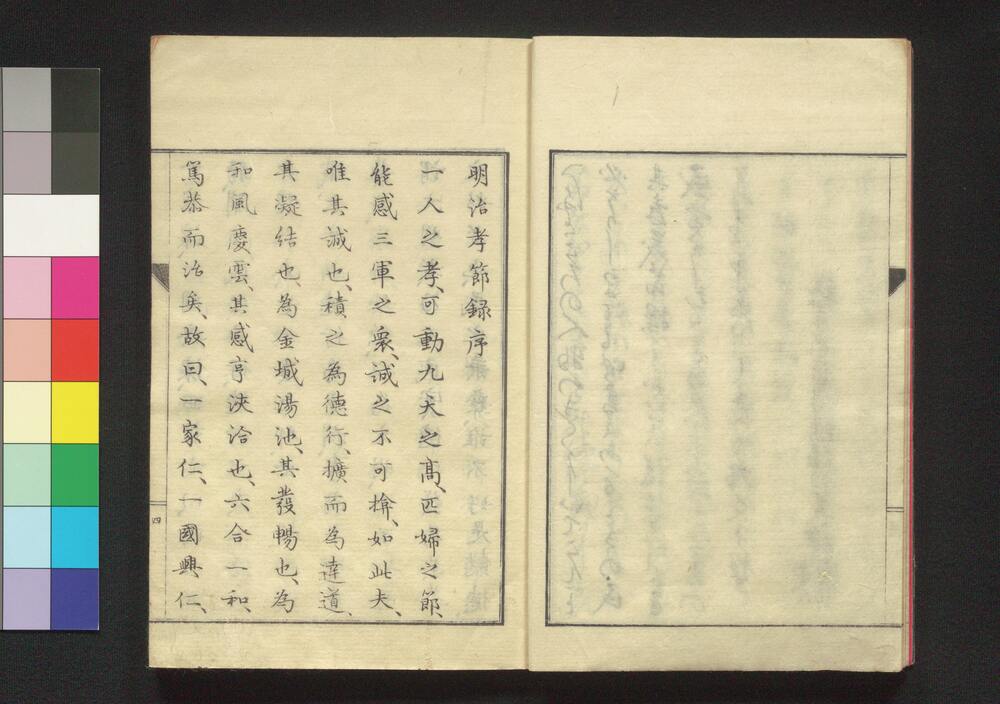 明治孝節録序
一人之孝、可動九天之高、匹婦之節、
能感三軍之衆、誠之不可揜、如此夫、
唯其誠也、積之為徳行、擴而為達道、
其凝結也、為金城湯池、其發暢也、為
和風慶雲、其感亨浹洽也、六合一和、
篤恭而治矣、故曰、一家仁、一國興仁、
四